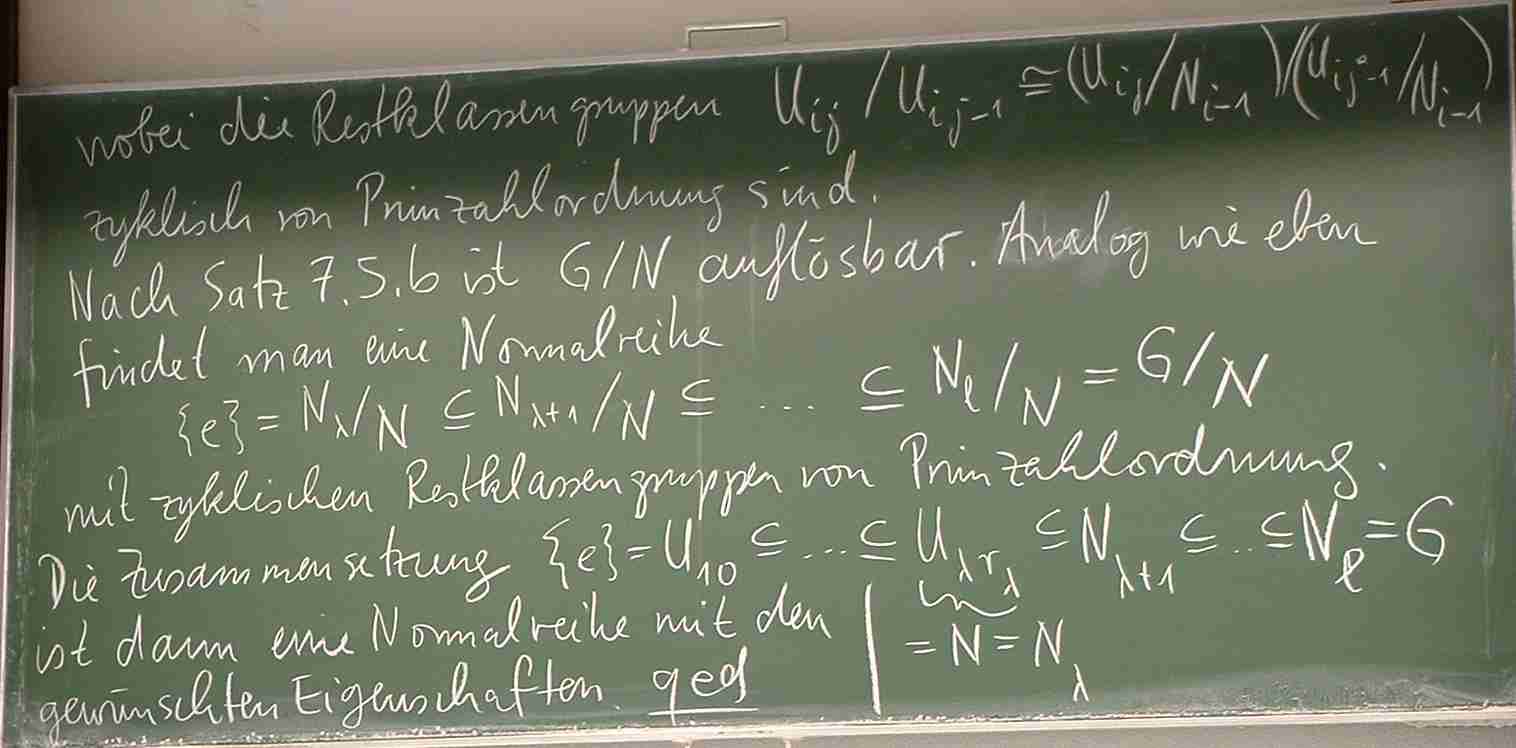 wobei die Restklassengruppen U_{ij} / U_{i,j-1} ≅ (U_{ij}/N_{i-1})/(U_{ij-1}/N_{i-1})
zyklisch von Primzahlordnung sind.
Nach Satz 7.5.6 ist G/N auflösbar. Analog wie eben
findet man eine Normalreihe
{e} = N_λ/N ⊆ N_{λ+1}/N ⊆ ... ⊆ N_ℓ/N = G/N
mit zyklischen Restklassengruppen von Primzahlordnung.
Die Zusammensetzung {e} = U_{10} ⊆ ... ⊆ U_{λr_λ} ⊆ N_{λ+1} ⊆ ... ⊆ N_ℓ = G
ist dann eine Normalreihe mit den | = N = N_λ
gewünschten Eigenschaften. qed